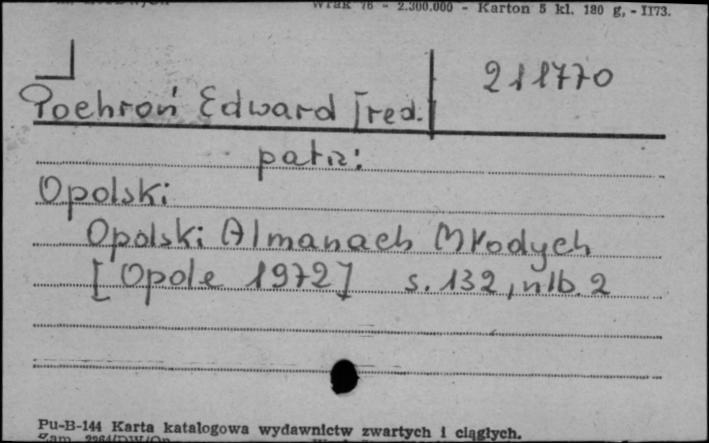 Wrak 76 - 2.300.000 - Karton 5 kl. 180 g, - II73.
211770
Pochroń Edward [red.]
patrz:
Opolski
Opolski Almanach Młodych
[Opole 1972] s. 132, nlb. 2
Pu-B-144 Karta katalogowa wydawnictw zwartych i ciągłych.